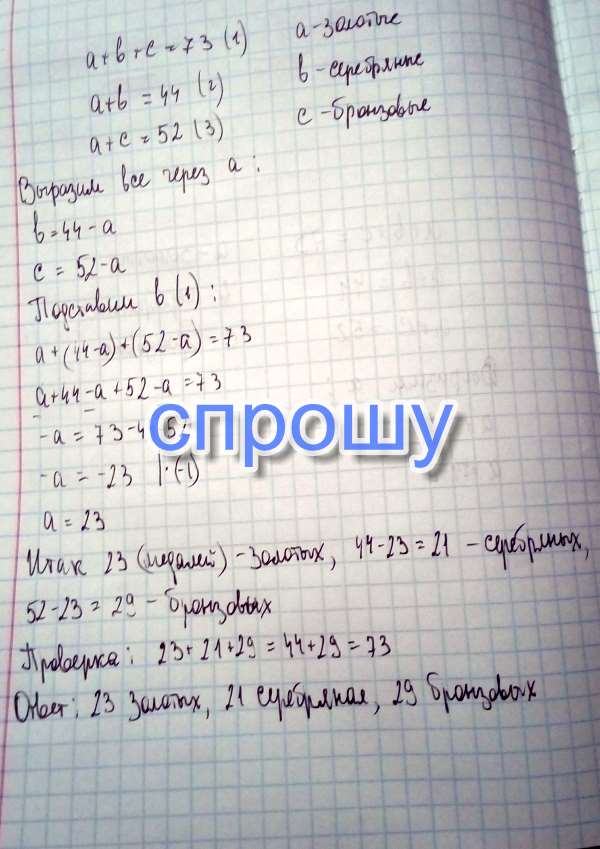 a+b+c=73 (1) a-золотые
a+b = 44 (2) b-серебряные
a+c = 52 (3) c-бронзовые
Выразим все через a:
b=44-a
c = 52-a
Подставим в (1):
a+(44-a)+(52-a)=73
a+44-a+52-a=73
-a = 73-4
спрошу
-a = -23 |·(-1)
a = 23
Итак 23 (медалей) - золотых, 44-23=21 - серебряных,
52-23 = 29 - бронзовых
Проверка: 23+21+29 = 44+29 = 73
Ответ: 23 золотых, 21 серебряная, 29 бронзовых